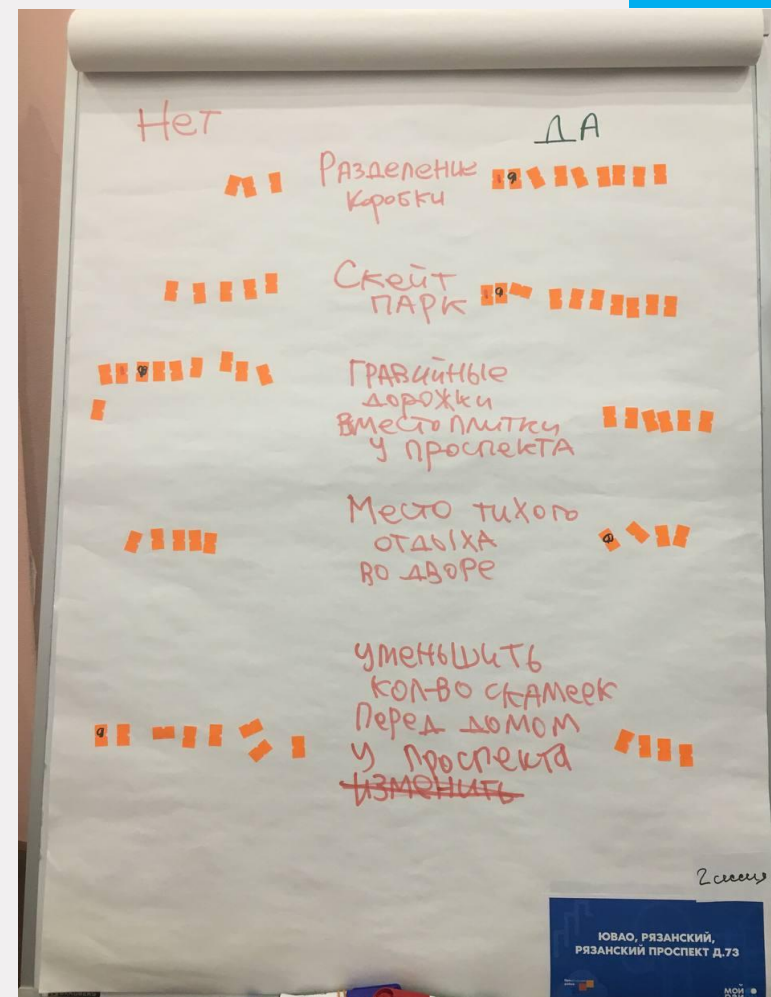 Нет
ДА
Разделение
коробки
Скейт
парк
Гравийные
дорожки
вместо плитки
у проспекта
Место тихого
отдыха
во дворе
уменьшить
кол-во скамеек
перед домом
у проспекта
изменить
ЮВАО, РЯЗАНСКИЙ,
РЯЗАНСКИЙ ПРОСПЕКТ Д.73
МОЙ